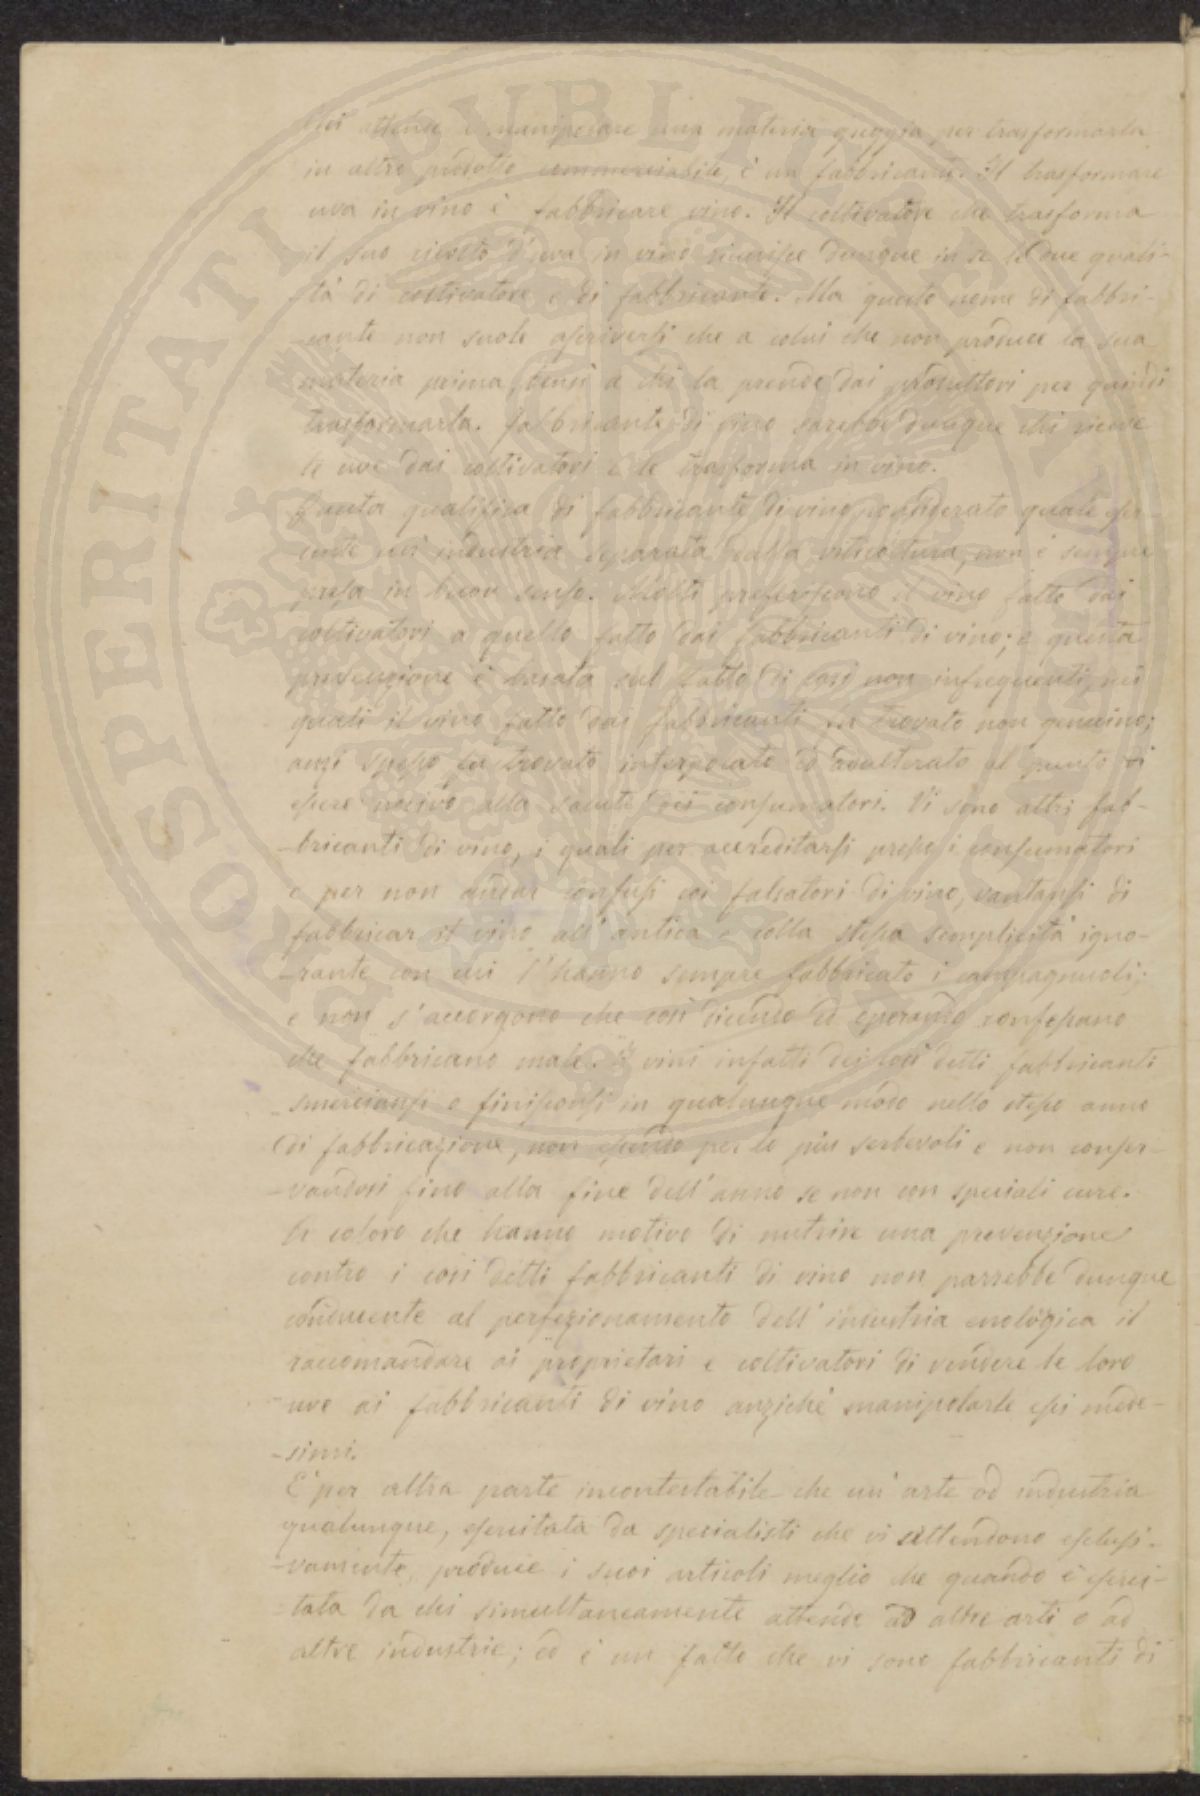 Chi attende a manipolare una materia greggia per trasformarla
in altro prodotto commerciabile, è un fabbricante. Il trasformare
uva in vino è fabbricare vino. Il coltivatore che trasforma
il suo ricolto d'uva in vino riunisce dunque in se le due quali-
tà di coltivatore e di fabbricante. Ma questo nome di fabbri-
-cante non suole ascriversi che a colui che non produce la sua
materia prima, bensì a chi la prende dai produttori per quindi
trasformarla. Fabbricante di vino sarebbe dunque chi riceve
le uve dai coltivatori e le trasforma in vino.
Questa qualifica di fabbricante di vino, considerato quale eser-
cente un' industria separata dalla viticoltura, non è sempre
presa in buon senso. Molti preferiscono il vino fatto dai
coltivatori a quello fatto dai fabbricanti di vino; e questa
prevenzione è basata sul fatto di casi non infrequenti, nei
quali il vino fatto dai fabbricanti fu trovato non genuino;
anzi spesso fu trovato interpolato ed adulterato al punto di
essere nocivo alla salute dei consumatori. Vi sono altri fab-
-bricanti di vino, i quali per accreditarsi presso i consumatori
e per non andar confusi coi falsatori di vino, vantansi di
fabbricar il vino all' antica e colla stessa semplicità igno-
-rante con cui l'hanno sempre fabbricato i campagnuoli;
e non s'accorgono che così dicendo ed operando confessano
che fabbricano male. I vini infatti dei così detti fabbricanti
smerciansi o finisconsi in qualunque modo nello stesso anno
di fabbricazione, non essendo per lo più serbevoli e non conser-
-vandosi fino alla fine dell'anno se non con speciali cure.
A coloro che hanno motivo di nutrire una prevenzione
contro i così detti fabbricanti di vino non parrebbe dunque
conducente al perfezionamento dell' industria enologica il
raccomandare ai proprietari e coltivatori di vendere le loro
uve ai fabbricanti di vino anziché manipolarle essi mede-
-simi.
E' per altra parte incontestabile che un' arte od industria
qualunque, esercitata da specialisti che vi attendono esclusi-
-vamente, produce i suoi articoli meglio che quando è eserci-
-tata da chi simultaneamente attende ad altre arti o ad
altre industrie; ed è un fatto che vi sono fabbricanti di
PROSPERITATI PUBLICAE